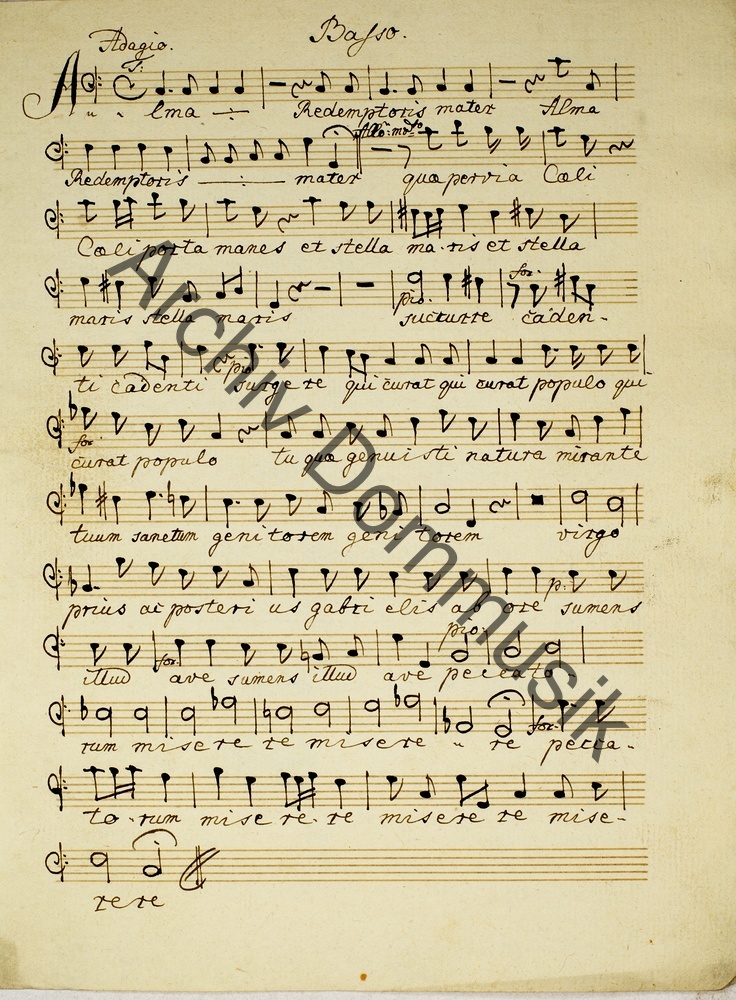 Adagio. Basso.
T:
Alma Redemptoris mater Alma
All:o mod:to
Redemptoris mater quæ pervia Cœli
Cœli porta manes et stella ma-ris et stella
pio. for.
maris stella maris succurre caden-
pio.
ti cadenti surge re qui curat qui curat populo qui
for.
curat populo tu quæ genuisti natura mirante
tuum sanctum genitorem geni torem virgo
p:
prius ac posteri us gabri elis ab ore sumens
for. pio:
illud ave sumens illud ave peccato-
for.
rum misere re misere re pecca-
to-rum mise re-re misere re mise-
rere
Archiv Dommusik